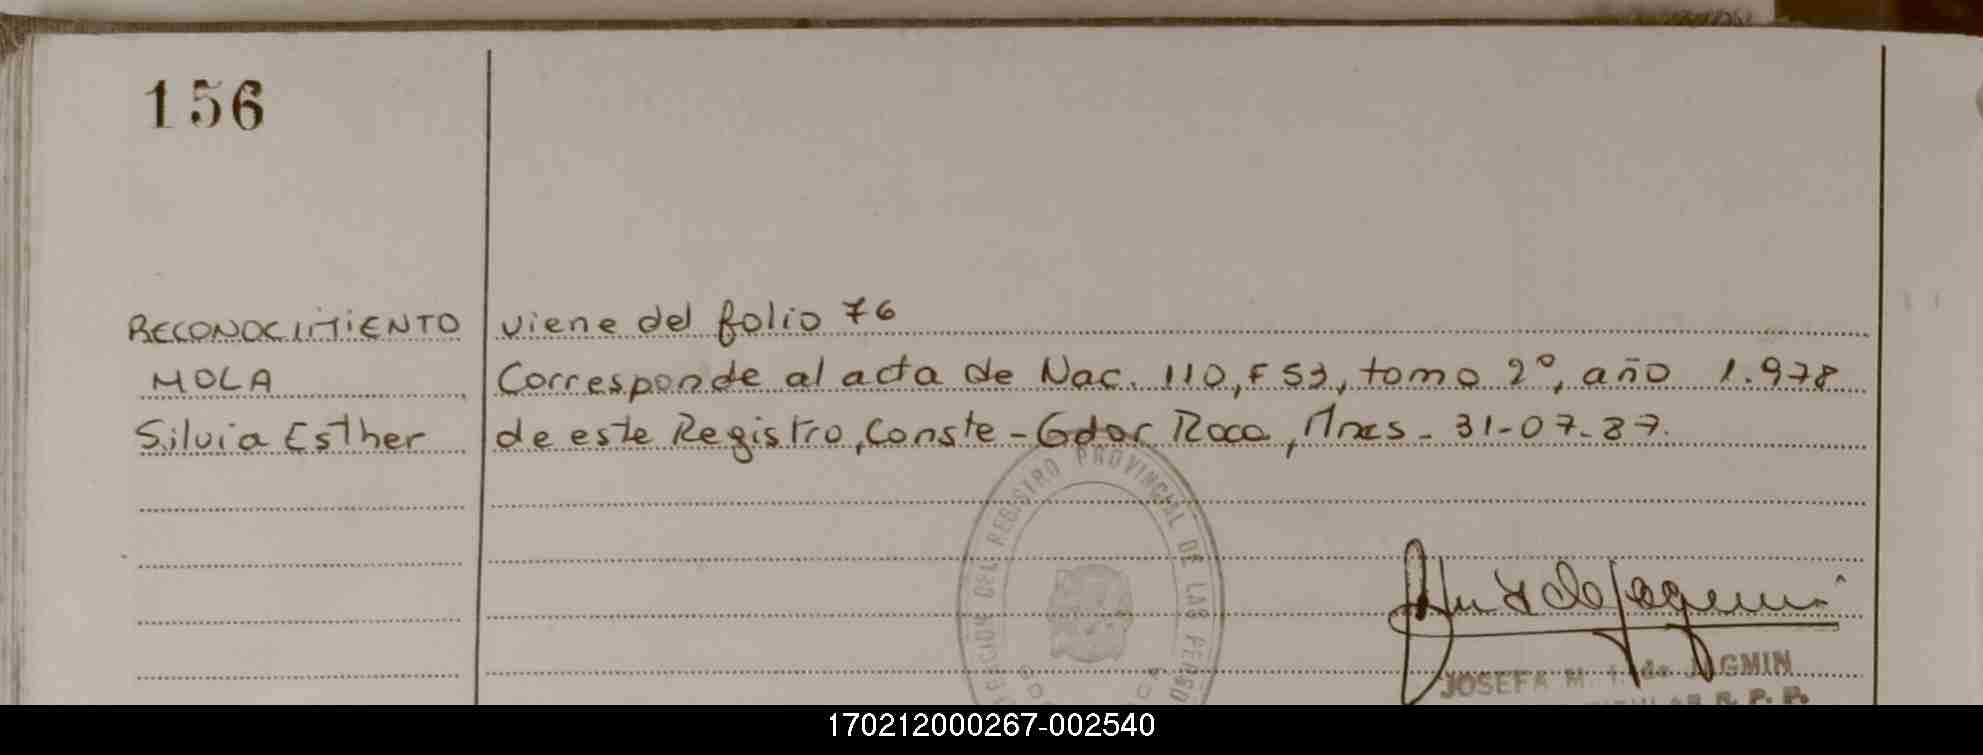 156
RECONOCIMIENTO
MOLA
Silvia Esther
viene del folio 76
Corresponde al acta de Nac. 110, F 53, tomo 2º, año 1.978
de este Registro, Conste - Gdor Roca, Mnes - 31-07-87.
DIRECCION DEL REGISTRO PROVINCIAL DE LAS PERSO
JOSEFA M. de JAGMIN
R. P. P.
170212000267-002540